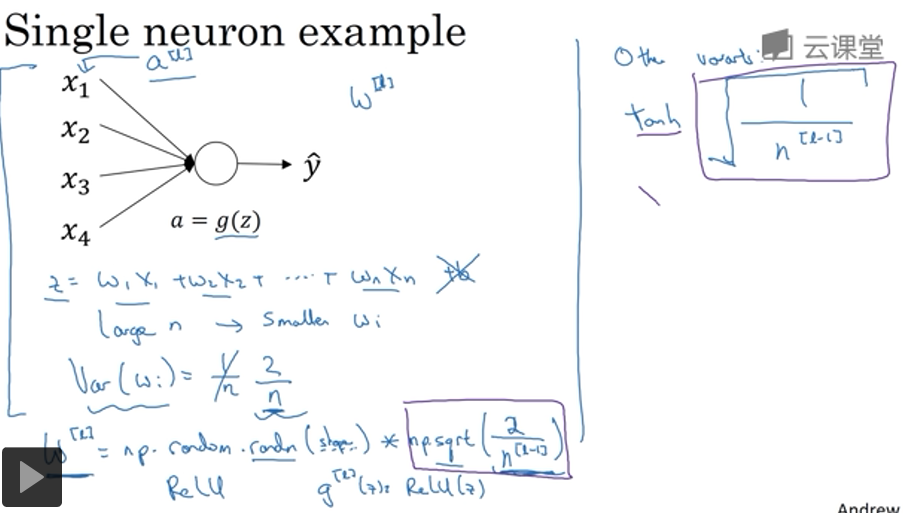 Single neuron example
a^[l]
x₁
x₂
x₃
x₄
ŷ
a = g(z)
w^[l]
z = w₁x₁ + w₂x₂ + ..... + wₙxₙ +b
Large n → Smaller wᵢ
Var(wᵢ) = 1/n 2/n
W^[l] = np.random.randn(shape) * np.sqrt(2/n^[l-1])
ReLU g^[l](z) = ReLU(z)
云课堂
Other variants:
tanh √(1/n^[l-1])
Andrew